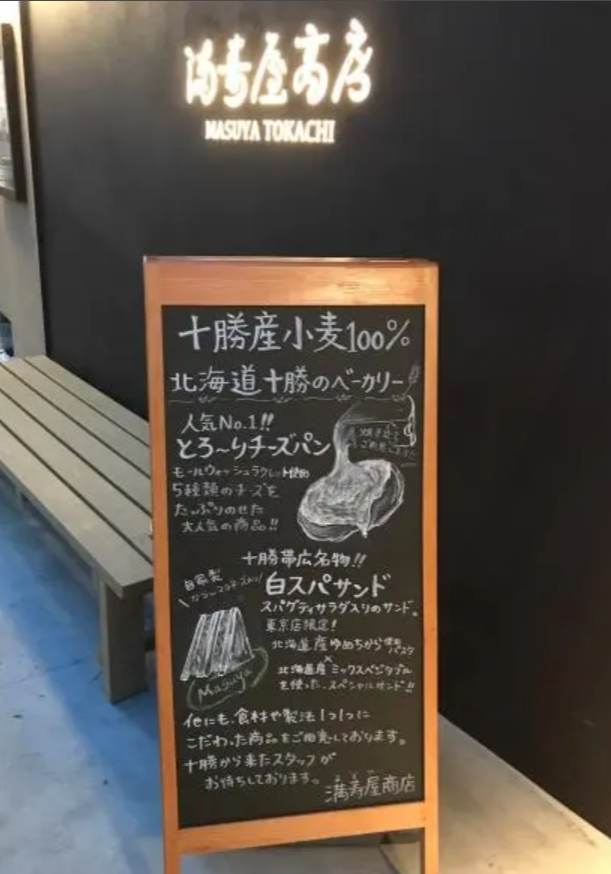 満寿屋商店
MASUYA TOKACHI
十勝産小麦100%
北海道十勝のベーカリー
人気No.1!!
とろ〜りチーズパン
モールウォッシュラクレット使用
5種類のチーズを
たっぷりのせた
大人気の商品!!
十勝帯広名物!!
自家製
白スパサンド
スパゲティサラダ入りのサンド。
東京店限定!
北海道産ゆめちから使用パスタ
×
北海道産ミックスベジタブル
を使った、スペシャルサンド!!
Masuya
他にも、食材や製法1つ1つに
こだわった商品をご用意しております。
十勝から来たスタッフが
お待ちしております。
満寿屋商店